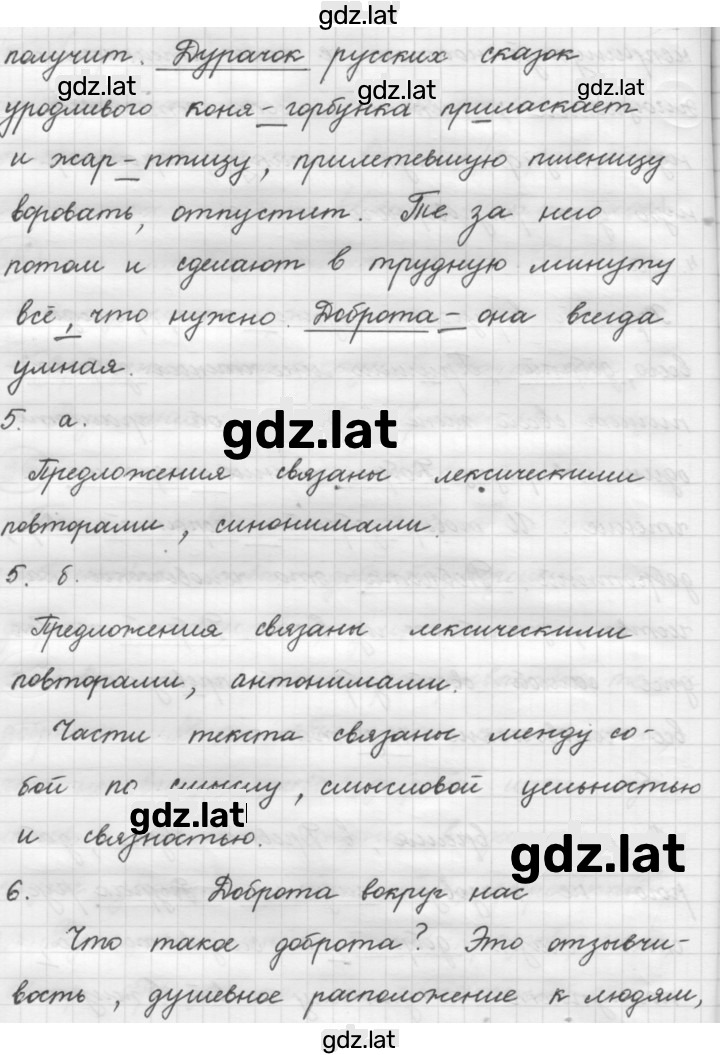 gdz.lat
получит. Дурачок русских сказок
gdz.lat gdz.lat gdz.lat
уродливого коня-горбунка приласкает
и жар-птицу, прилетевшую пшеницу
воровать, отпустит. Те за него
потом и сделают в трудную минуту
всё, что нужно. Доброта - она всегда
умная.
5. а.
gdz.lat
Предложения связаны лексическими
повторами, синонимами.
5. б.
Предложения связаны лексическими
повторами, антонимами.
Части текста связаны между со-
бой по смыслу, смысловой цельностью
gdz.lat
и связностью.
gdz.lat
6. Доброта вокруг нас
Что такое доброта? Это отзывчи-
вость, душевное расположение к людям,
gdz.lat